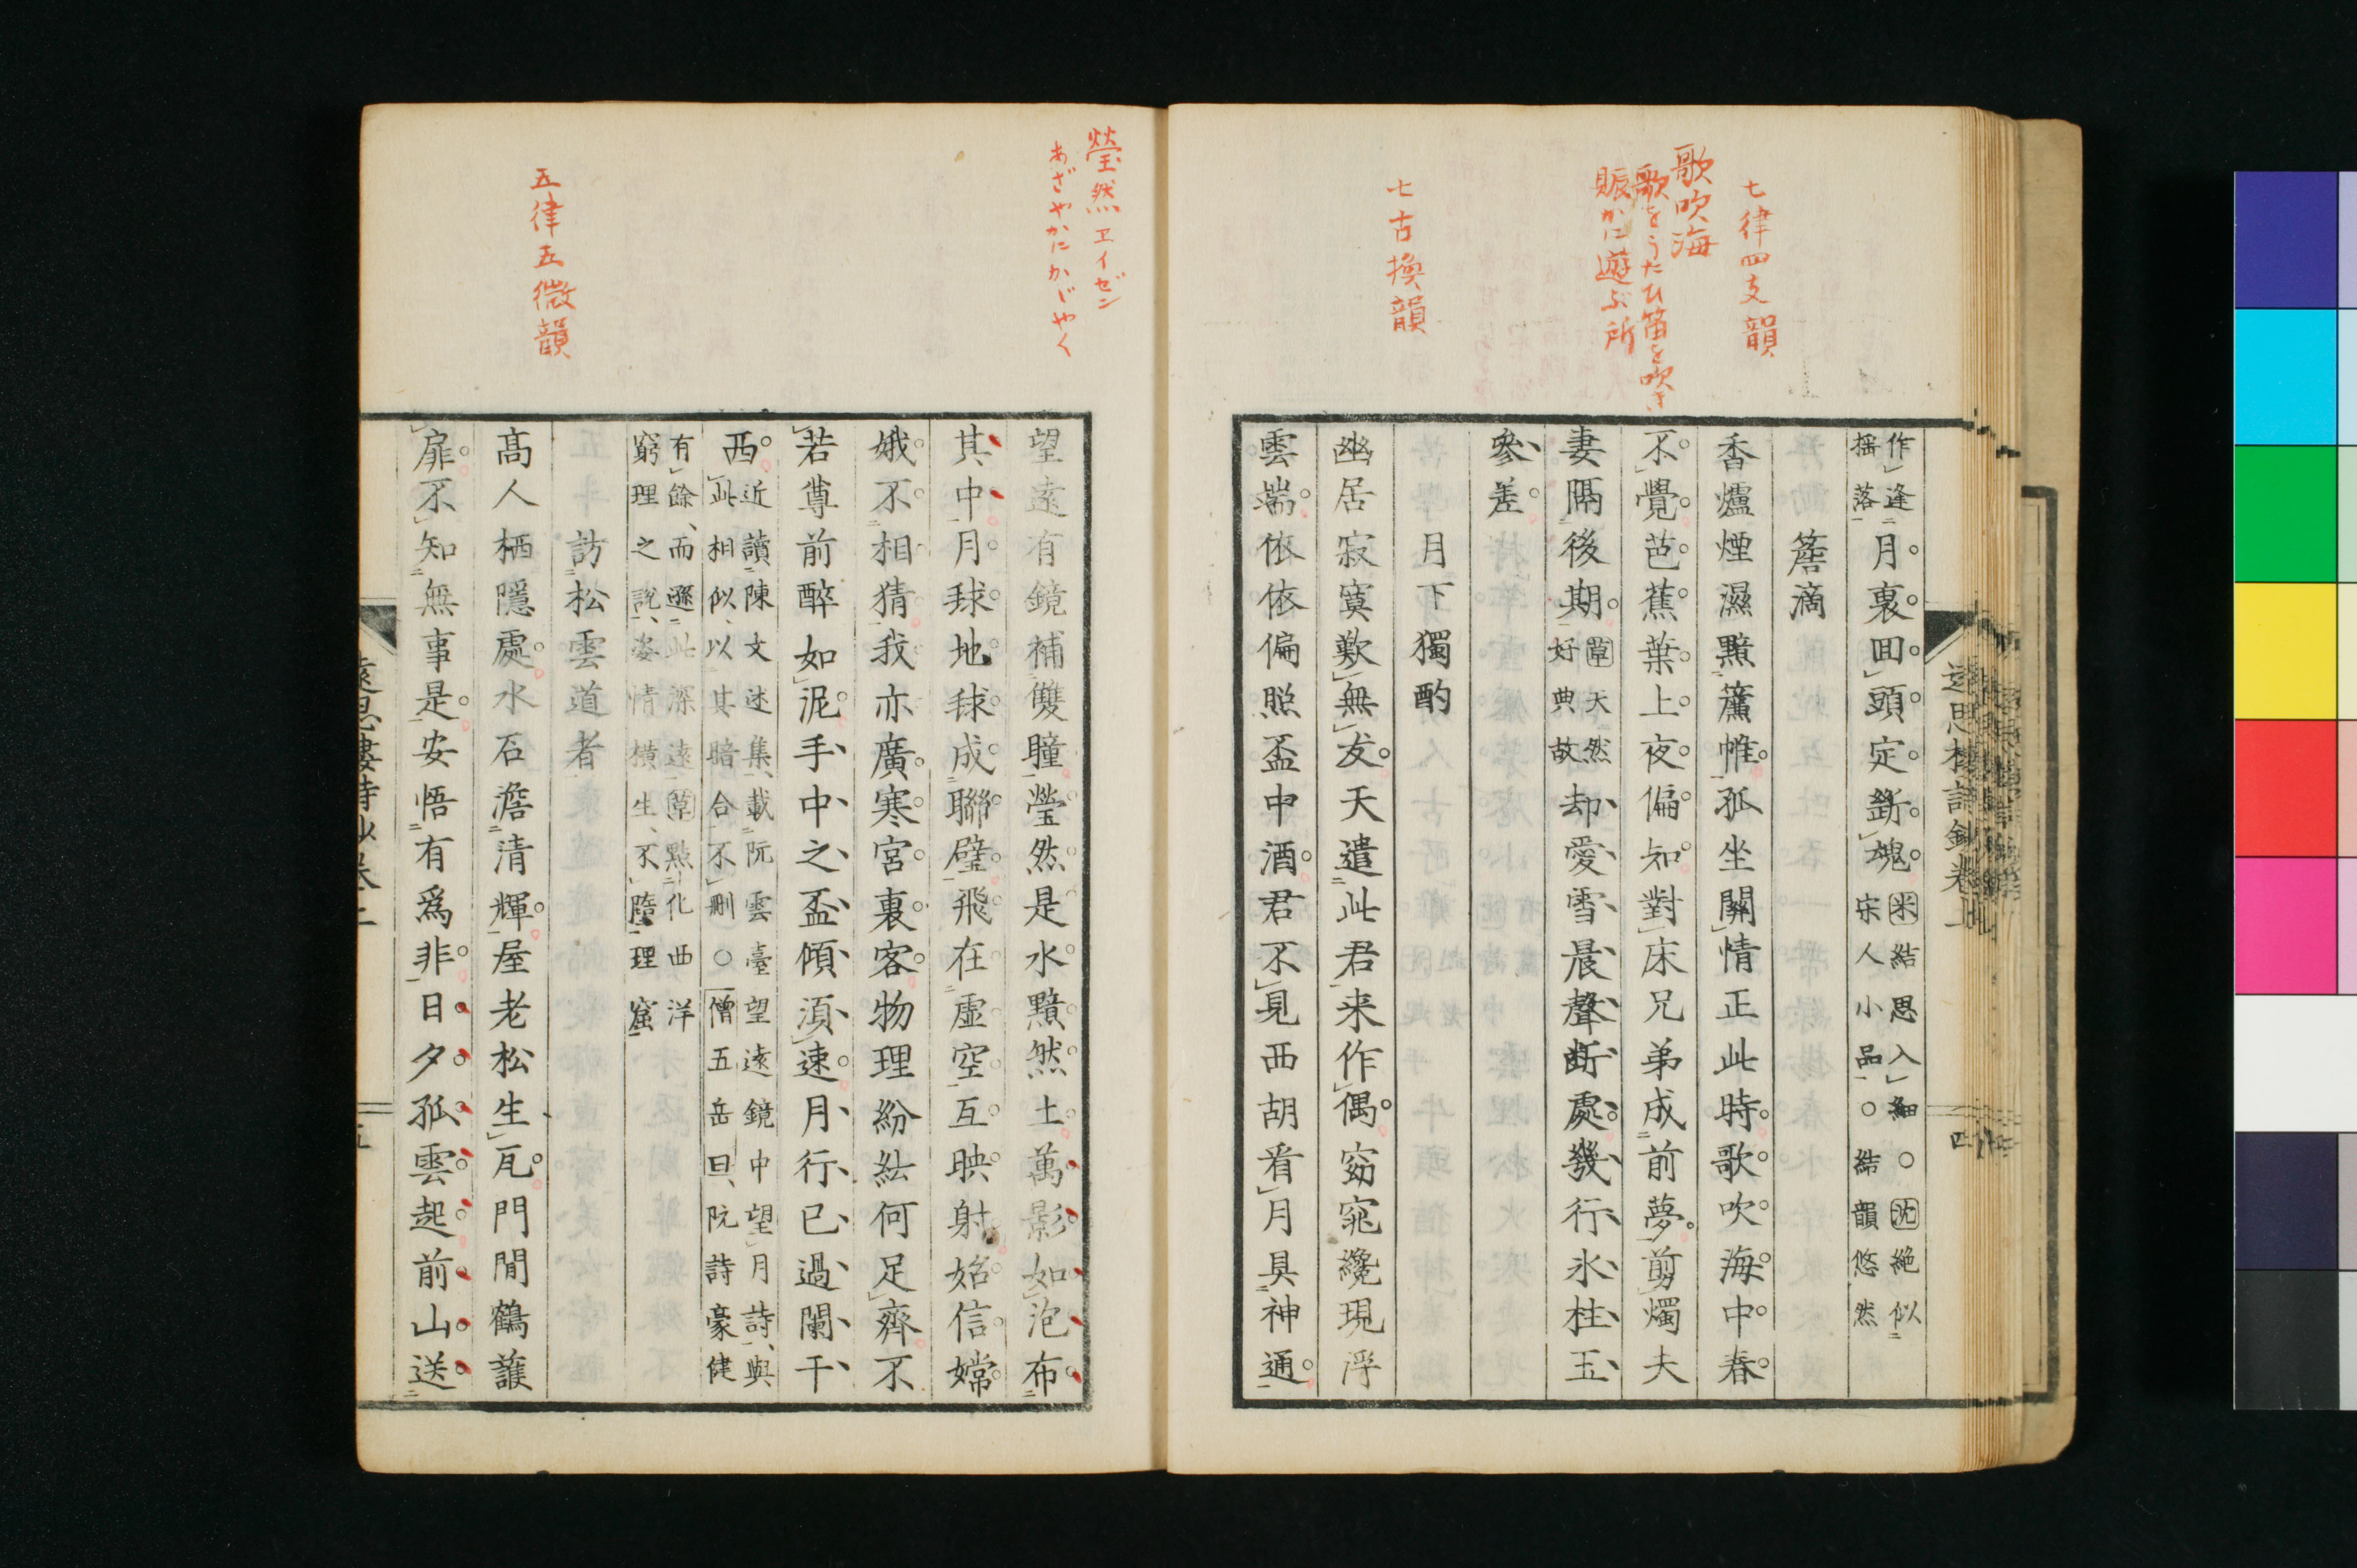 七律四支韻
歌吹海
歌をうたひ笛を吹き
賑かに遊ぶ所
七古換韻
遠思樓詩鈔卷上
四
作逢
揺落
月裏回頭定斷魂
米結思入細○沈絶似
宋人小品○結韻悠然
簷滴
香爐煙濕黯簾帷孤坐關情正此時歌吹海中春
不覺芭蕉葉上夜偏知對床兄弟成前夢剪燭夫
妻隔後期
草天然
好典故
却愛雪晨聲断處幾行氷柱玉
參差
月下獨酌
幽居寂寞歎無友天遣此君来作偶窈窕纔現浮
雲端依依偏照盃中酒君不見西胡看月具神通
瑩然ヱイゼン
あざやかにかゞやく
五律五微韻
望遠有鏡補雙瞳瑩然是水黯然土萬影如泡布
其中月球地球成聯璧飛在虚空互映射始信嫦
娥不相猜我亦廣寒宮裏客物理紛紜何足齊不
若尊前醉如泥手中之盃傾須速月行已過闌干
西
近讀陳文述集載阮雲臺望遠鏡中望月詩與
此相似以其暗合不刪○僧五岳曰阮詩豪健
有餘而遜此深遠草點化西洋
窮理之説姿情横生不墮理窟
訪松雲道者
高人栖隱處水石澹清輝屋老松生瓦門閒鶴護
扉不知無事是安悟有爲非日夕孤雲起前山送
遠思樓詩鈔卷上
五